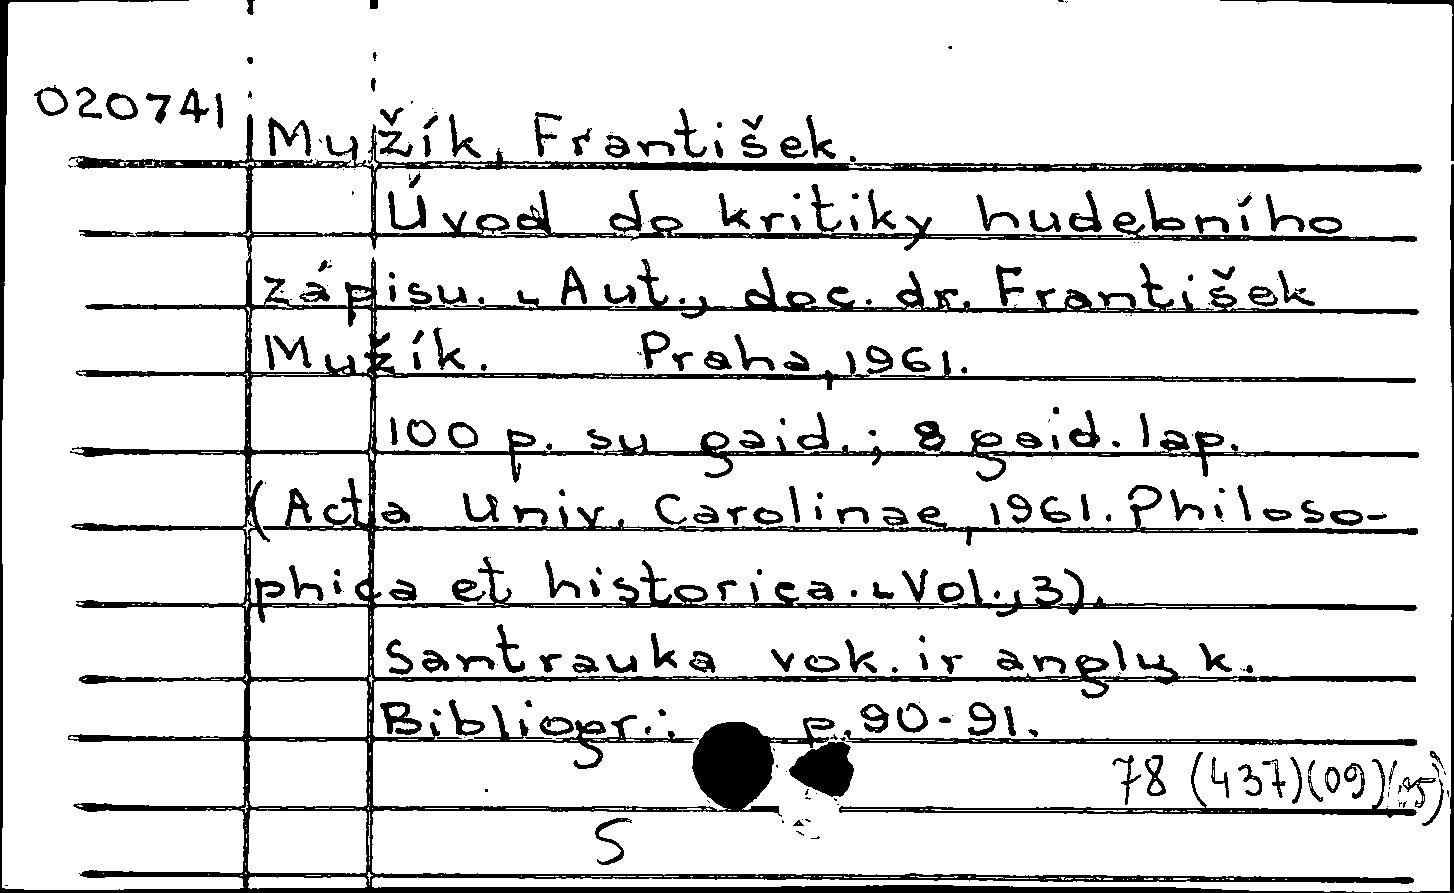 020741
Mužík, František.
Úvod do kritiky hudebního
zápisu. - Aut., doc. dr. František
Mužík. Praha, 1961.
100 p. su gaid.; 8 gaid. lap.
(Acta Univ. Carolinae, 1961. Philoso-
phica et historica. - Vol., 3).
Santrauka vok. ir anglų k.
Bibliogr.: p. 90-91.
78 (437)(09)
S